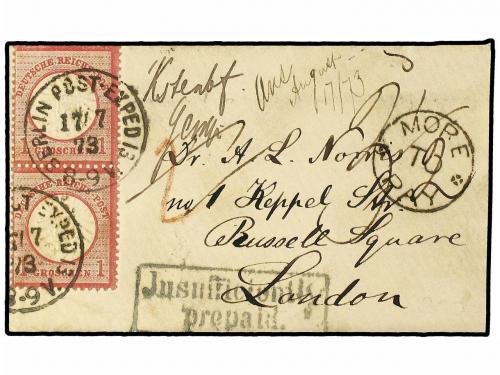 DEUTSCHE REICHS-POST
1 GROSCHEN 1
BERLIN POST-EXPED
17/7
73
8-9 V.
DEUTSCHE REICHS-POST
GROSCHEN 1
EXPED
73
8-9 V.
August
17/73
2
MORE
TO
PAY
Dr. A. L. Norris
no 1 Keppel Str.
Russell Square
London
Insufficiently
prepaid.